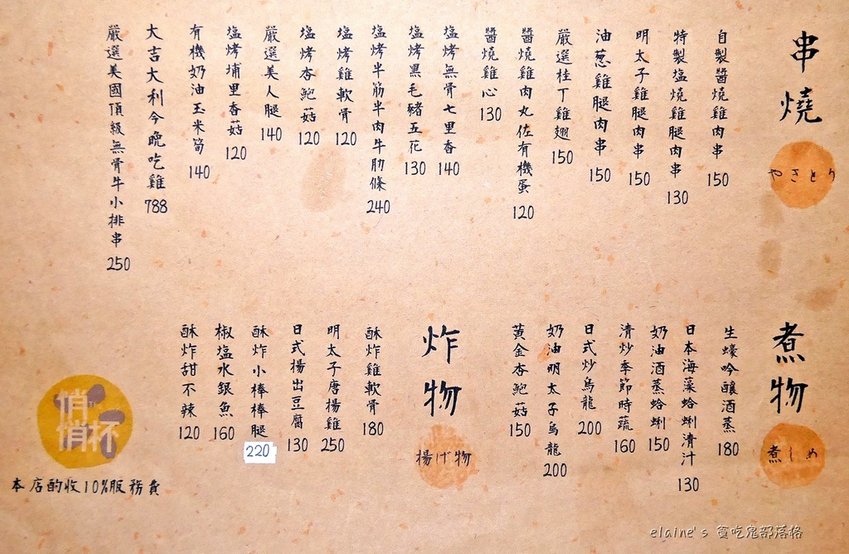 串燒
やきとり
自製醬燒雞肉串 150
特製塩燒雞腿肉串 130
明太子雞腿肉串 150
油蔥雞腿肉串 150
嚴選桂丁雞翅 150
醬燒雞肉丸佐有機蛋 120
醬燒雞心 130
塩烤無骨七里香 140
塩烤黑毛豬五花 130
塩烤半筋半肉牛肋條 240
塩烤雞軟骨 120
塩烤杏鮑菇 120
嚴選美人腿 140
塩烤埔里香菇 120
有機奶油玉米筍 140
大吉大利今晚吃雞 788
嚴選美國頂級無骨牛小排串 250
煮物
煮しめ
生蠔吟釀酒蒸 180
日本海藻蛤蜊清汁 130
奶油酒蒸蛤蜊 150
清炒季節時蔬 160
日式炒烏龍 200
奶油明太子烏龍 200
黃金杏鮑菇 150
炸物
揚げ物
酥炸雞軟骨 180
明太子唐揚雞 250
日式揚出豆腐 130
酥炸小棒棒腿 220
椒塩水銀魚 160
酥炸甜不辣 120
悄悄杯
本店酌收10%服務費
elaine's 貪吃鬼部落格